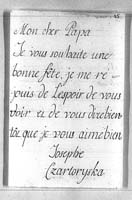 Mon cher Papa
Je vous souhaite une
bonne fête, je me ré-
jouis de l'espoir de vous
voir et de vous dire bien
tôt que je vous aime bien
Josephe
Czartoryska